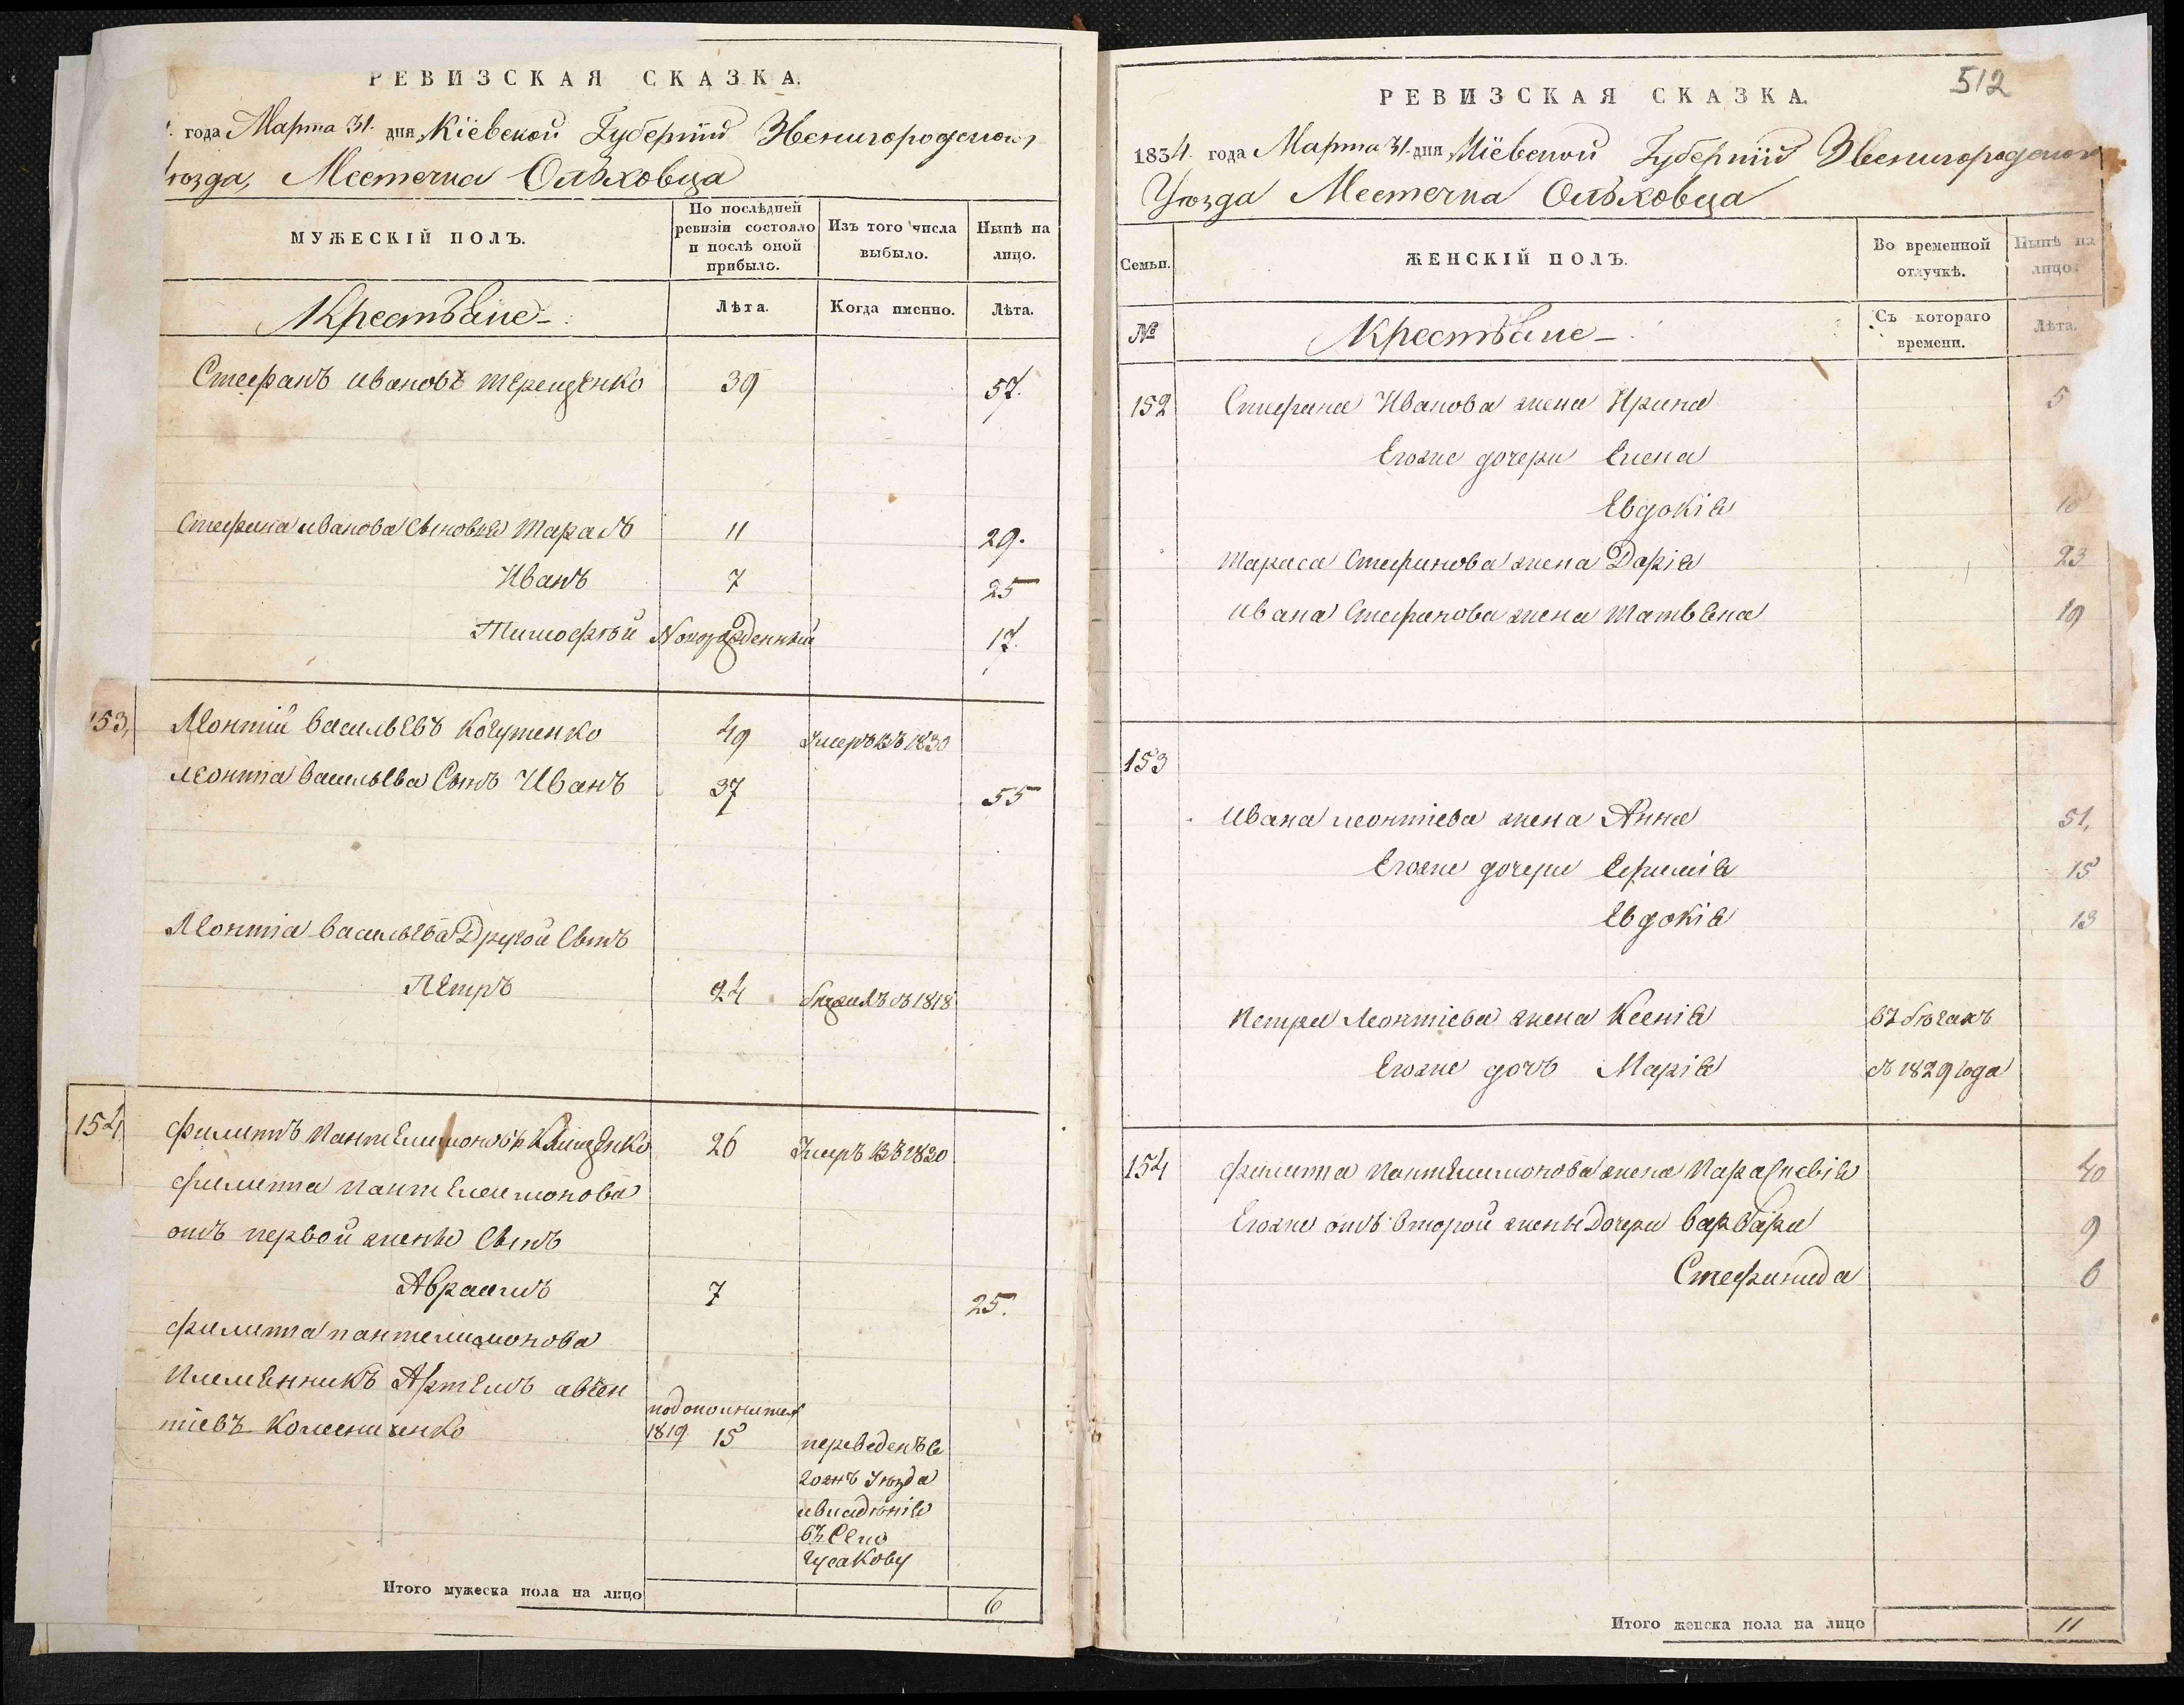 РЕВИЗСКАЯ СКАЗКА.
года Марта 31. дня Кіевской Губерніи Звенигородского
уѣзда, Местечка Ольховца
МУЖЕСКІЙ ПОЛЪ.
По послѣдней ревизіи состояло и послѣ оной прибыло.
Изъ того числа выбыло.
Нынѣ на лицо.
Крестьяне
Лѣта.
Когда именно.
Лѣта.
Стефанъ ивановъ терещенко 39 57.
Стефана иванова Сыновья Тарасъ 11 29.
Иванъ 7 25
Тимофѣй Новорожденный 17.
153, Леонтій васильевъ Кочутенко 49 Умеръ въ 1830
леонтіа васильева Сынъ Иванъ 37 55
Леонтіа васильева Другой Сынъ
Петръ 24 бежалъ въ 1818
154 филиппъ пантелимоновъ 26 Умеръ въ 1820
филиппа пантелеимонова
отъ первой жены Сынъ
Абрамъ 7 25.
филиппа пантелимонова
племенникъ Артемъ авсен
тіевъ Колесниченко
1819 15 переведенъ
Уѣзда
въ Село
гусакову
Итого мужеска пола на лицо 6
512
РЕВИЗСКАЯ СКАЗКА.
1834. года Марта 31. дня Кіевской Губерніи Звенигородского
Уѣзда Местечка Ольховца
Семьи.
ЖЕНСКІЙ ПОЛЪ.
Во временной отлучкѣ.
Нынѣ на лицо.
№
Крестьяне
Съ котораго времени.
Лѣта.
152 Стефана Иванова жена Ирина 5
Егоже дочери Елена
Евдокія
Тараса Стефанова жена Дарія 23
ивана Стефанова жена Матвена 19
153
ивана леонтіева жена Анна 51,
Егоже дочери Ефимія 15
Евдокія 13
петра леонтіева жена Ксенія въ бѣгахъ
Егоже дочь Марія съ 1829 года
154 филиппа пантелимонова жена Параскевія 40
Егоже отъ второй жены Дочери варвара 9
Стефанида 6
Итого женска пола на лицо 11